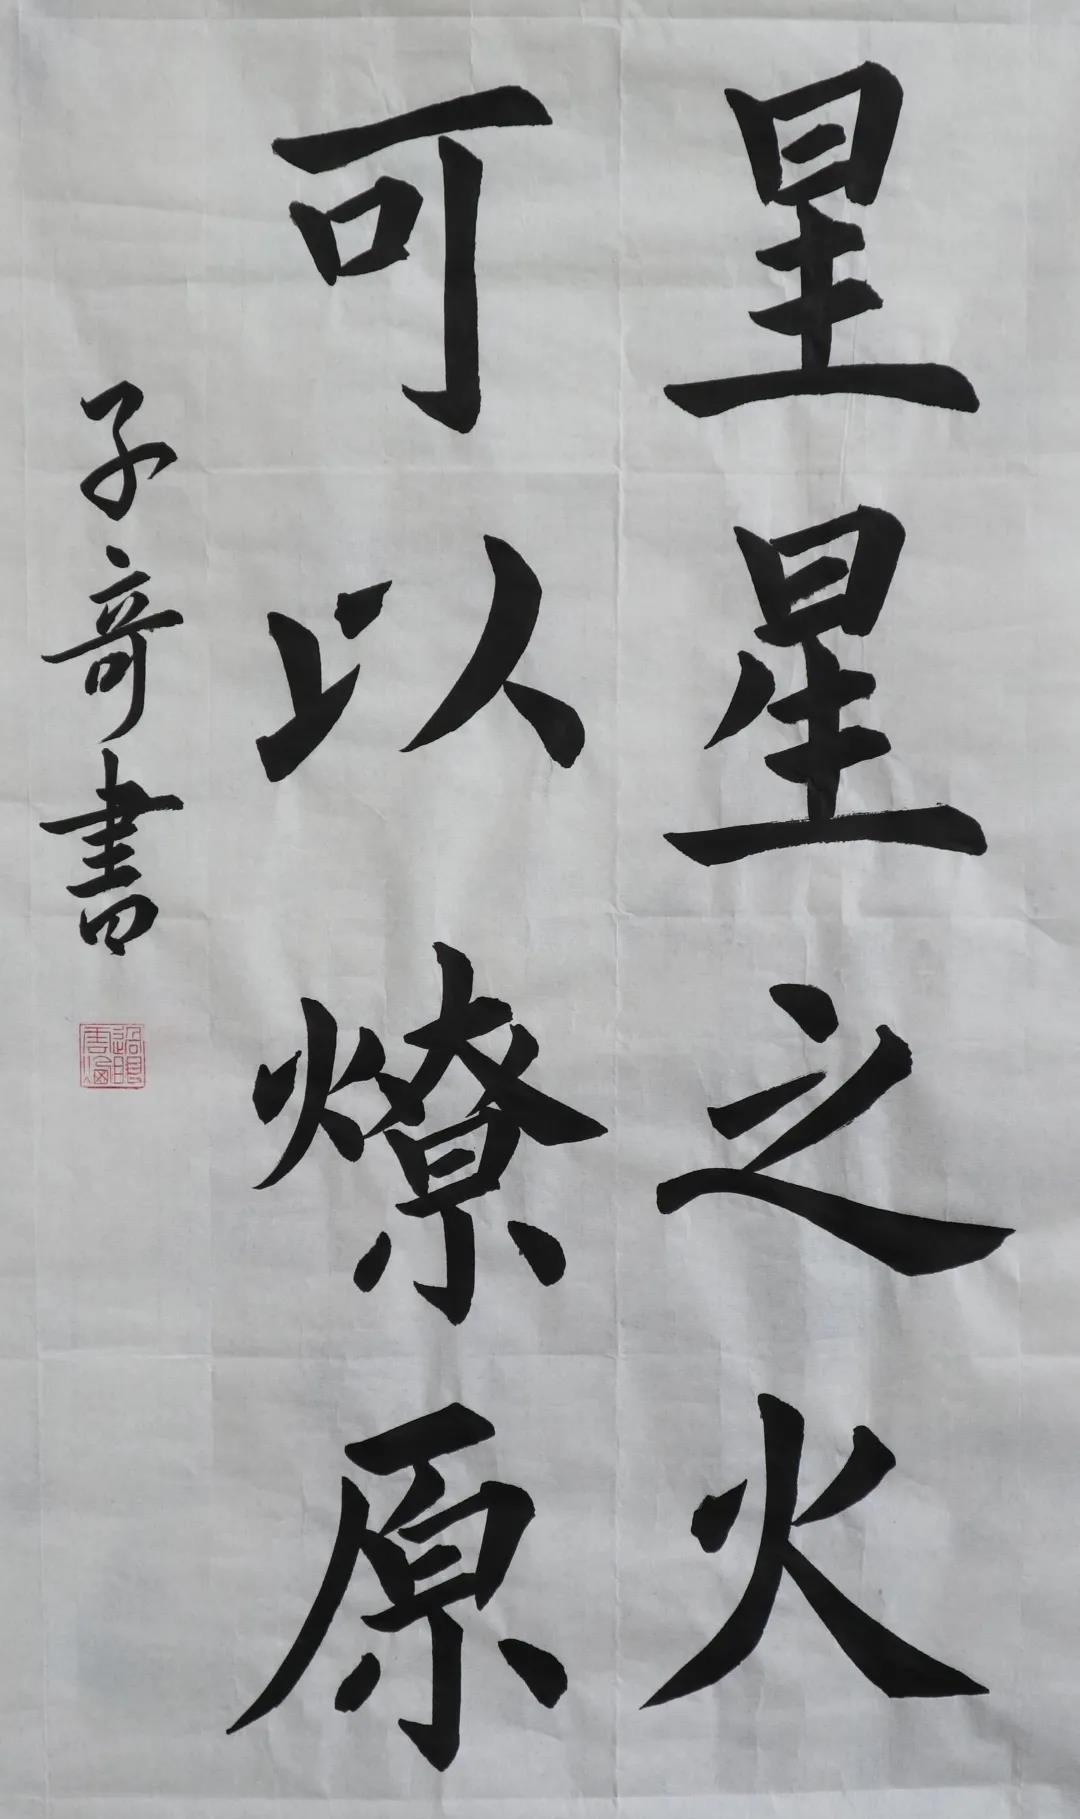 星星之火
可以燎原
子奇書